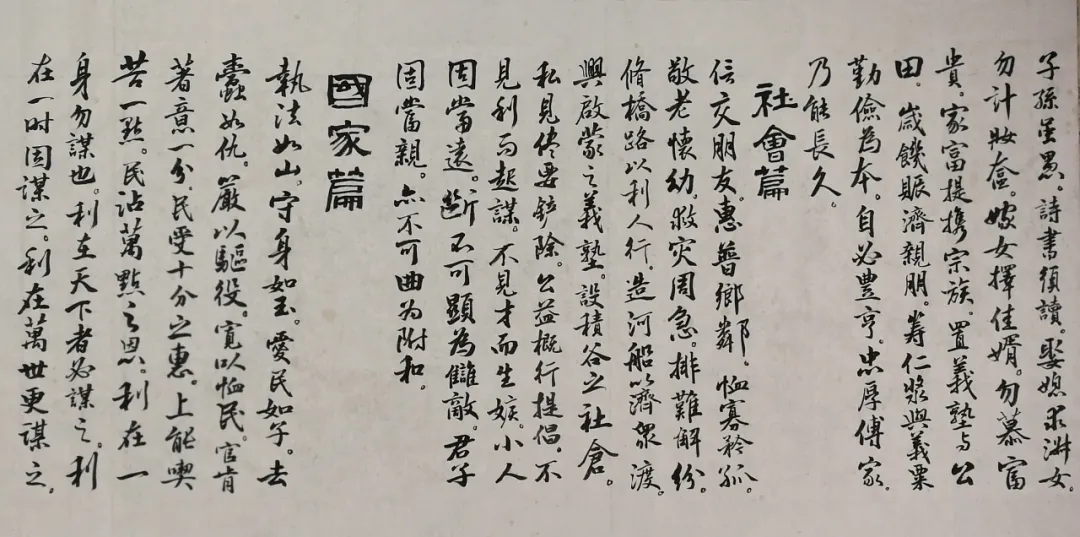 子孫虽愚。詩書須讀。娶媳求淑女。
勿計妝奩。嫁女擇佳婿。勿慕富
貴。家富提攜宗族。置義塾与公
田。歲饑賑濟親朋。筹仁漿與義粟
勤儉為本。自必豊亨。忠厚傳家。
乃能長久。
社會篇
信交朋友。惠普鄉鄰。恤寡矜孤。
敬老懷幼。救灾周急。排難解纷。
脩橋路以利人行。造河船以濟眾渡。
興啟蒙之義塾。設積谷之社倉。
私見儘要铲除。公益概行提倡。不
見利而起謀。不見才而生嫉。小人
固當遠。断不可顯為讎敵。君子
固當親。亦不可曲为附和。
國家篇
執法如山。守身如玉。愛民如子。去
蠹如仇。嚴以驅役。寬以恤民。官肯
著意一分。民受十分之惠。上能喫
苦一點。民沾萬點之恩。利在一
身勿謀也。利在天下者必謀之。利
在一时固謀之。利在萬世更謀之。